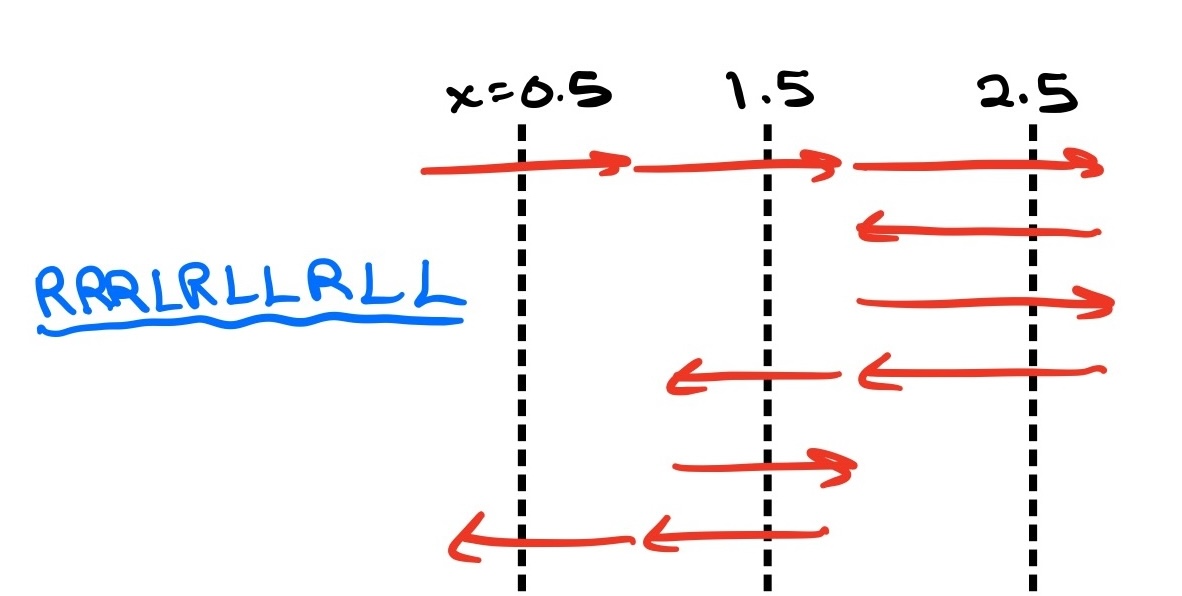 x=0.5 1.5 2.5
RRRLRLLRLL